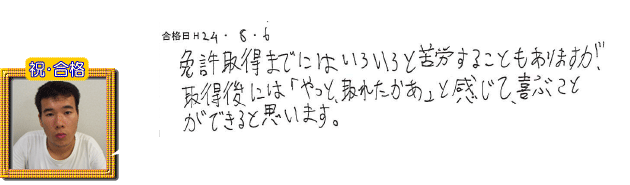 合格日 H 24 . 8 . 6
祝・合格
免許取得までにはいろいろと苦労することもありますが!
取得後には「やっと、取れたかあ」と感じて、喜ぶこと
ができると思います。